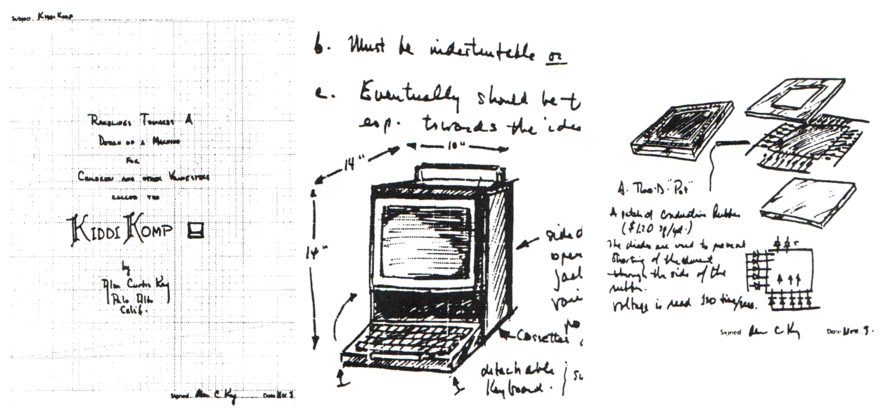 Subject: Kiddi Komp
Ramblings Towards A
Design of a Machine
for
Children and other Youngsters
called the
KIDDI KOMP
by
Alan Curtis Kay
Palo Alto
Calif.
Signed Alan C Kay Date Nov. 9
b. Must be indestructable or
c. Eventually should be
esp. towards the idea
14" 10"
14"
Cassettes
detachable
Keyboard.
A. Three-D "Pot"
A patch of Conductive Rubber
The diodes are used to prevent
shorting of the current
through the side of the
rubber.
Voltage is read
Signed Alan C Kay Date Nov. 9.